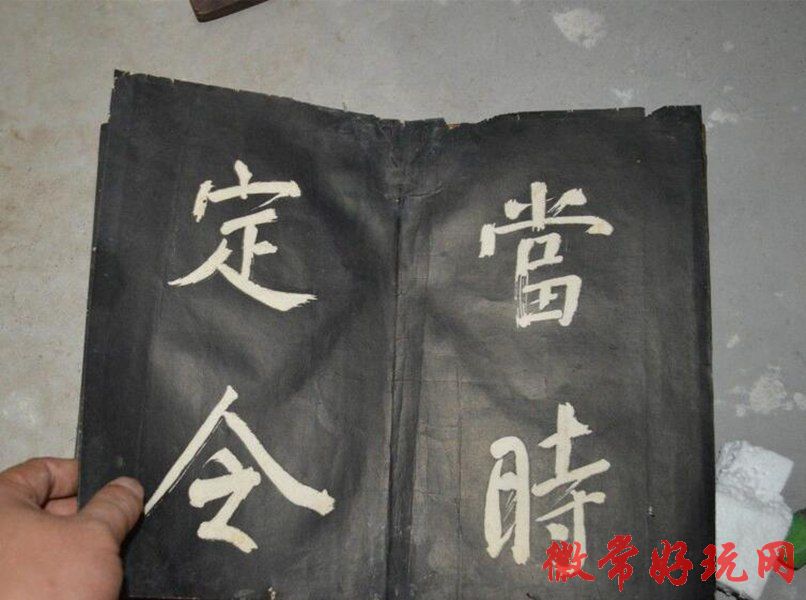 當時
定令
徽常好玩网